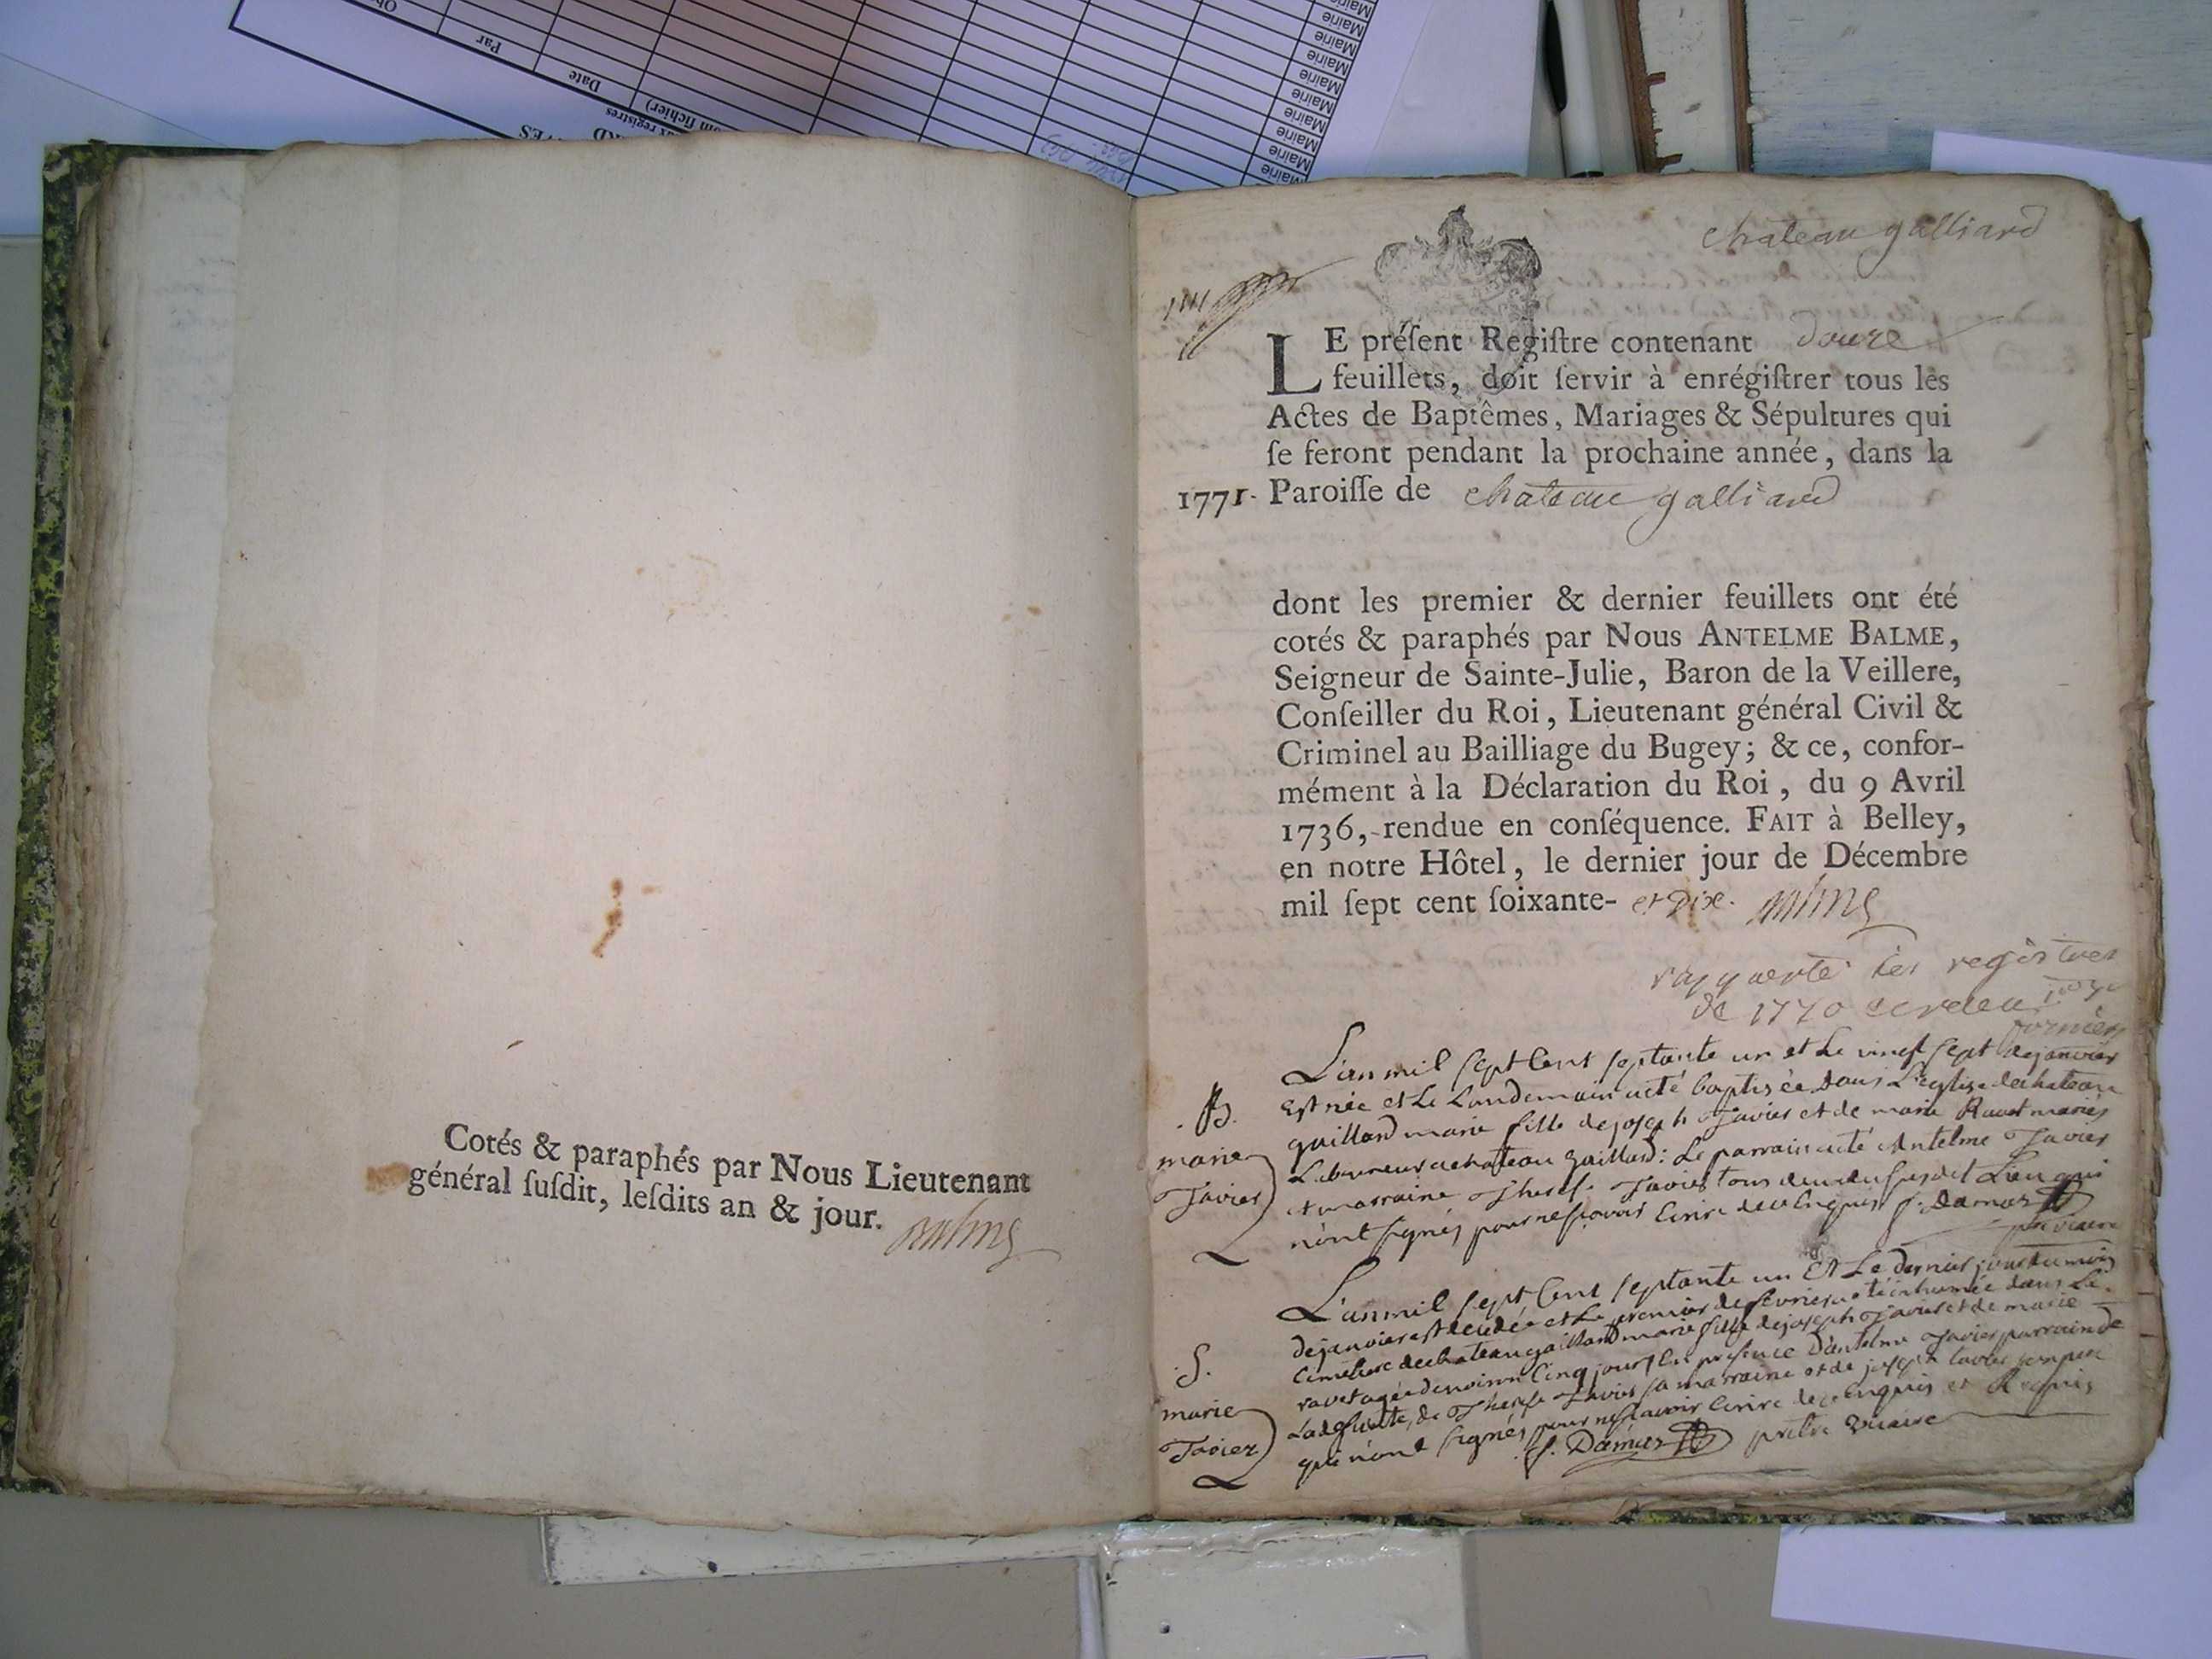 Mairie
Mairie
Mairie
Mairie
Mairie
Mairie
Mairie
Par
Date
om fichier)
ux registres
Cotés & paraphés par Nous Lieutenant
général ſuſdit, leſdits an & jour.
chateau galliard
LE préſent Regiſtre contenant douze
feuillets, doit ſervir à enrégiſtrer tous les
Actes de Baptêmes, Mariages & Sépultures qui
ſe feront pendant la prochaine année, dans la
1771. Paroiſſe de chateau galliard
dont les premier & dernier feuillets ont été
cotés & paraphés par Nous ANTELME BALME,
Seigneur de Sainte-Julie, Baron de la Veillere,
Conſeiller du Roi, Lieutenant général Civil &
Criminel au Bailliage du Bugey; & ce, confor-
mément à la Déclaration du Roi, du 9 Avril
1736, rendue en conſéquence. FAIT à Belley,
en notre Hôtel, le dernier jour de Décembre
mil ſept cent ſoixante- et Dix. Balme
rapporté les registres
de 1770
L'an mil sept Cent septante un et Le vingt sept de janvier
Est née et Le Landemain a été baptisée dans L'eglise de chateau
gaillard marie fille de joseph Tavier et de marie Ravet mariés
Laboureurs a chateau gaillard: Le parrain a été Antelme Tavier
et marraine Therese Tavier tous deux du susdit Lieu qui
n'ont signés pour ne sçavoir Ecrire de ce Enquis J. Damas
vicaire
B.
marie
Tavier
L'an mil sept Cent septante un Et Le dernier jour du mois
de janvier est decedée et Le premier de fevrier a été inhumée dans Le
Cimetiere de chateau gaillard marie fille de joseph Tavier et de marie
ravet agée d'environ Cinq jours En presence D'antelme Tavier parrain de
La defunte, de Therese Tavier sa marraine et de joseph tavier son pere
qui n'ont signés pour ne sçavoir Ecrire de ce Enquis et Requis
J. Damas prêtre vicaire
S.
marie
Tavier